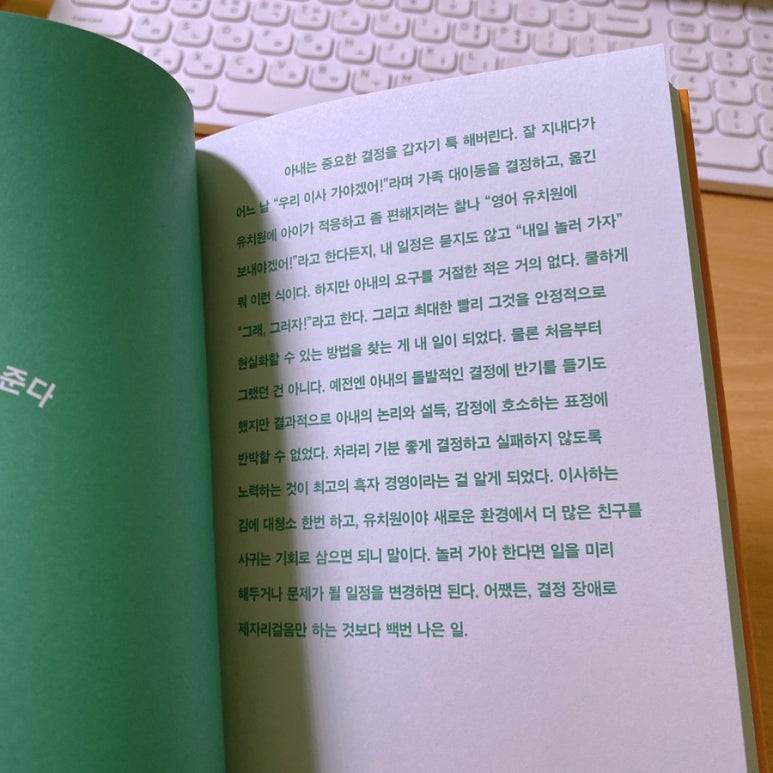 준다
아내는 중요한 결정을 갑자기 툭 해버린다. 잘 지내다가
어느 날 “우리 이사 가야겠어!”라며 가족 대이동을 결정하고, 옮긴
유치원에 아이가 적응하고 좀 편해지려는 찰나 “영어 유치원에
보내야겠어!”라고 한다든지, 내 일정은 묻지도 않고 “내일 놀러 가자”
뭐 이런 식이다. 하지만 아내의 요구를 거절한 적은 거의 없다. 쿨하게
“그래, 그러자!”라고 한다. 그리고 최대한 빨리 그것을 안정적으로
현실화할 수 있는 방법을 찾는 게 내 일이 되었다. 물론 처음부터
그랬던 건 아니다. 예전엔 아내의 돌발적인 결정에 반기를 들기도
했지만 결과적으로 아내의 논리와 설득, 감정에 호소하는 표정에
반박할 수 없었다. 차라리 기분 좋게 결정하고 실패하지 않도록
노력하는 것이 최고의 흑자 경영이라는 걸 알게 되었다. 이사하는
김에 대청소 한번 하고, 유치원이야 새로운 환경에서 더 많은 친구를
사귀는 기회로 삼으면 되니 말이다. 놀러 가야 한다면 일을 미리
해두거나 문제가 될 일정을 변경하면 된다. 어쨌든, 결정 장애로
제자리걸음만 하는 것보다 백번 나은 일.